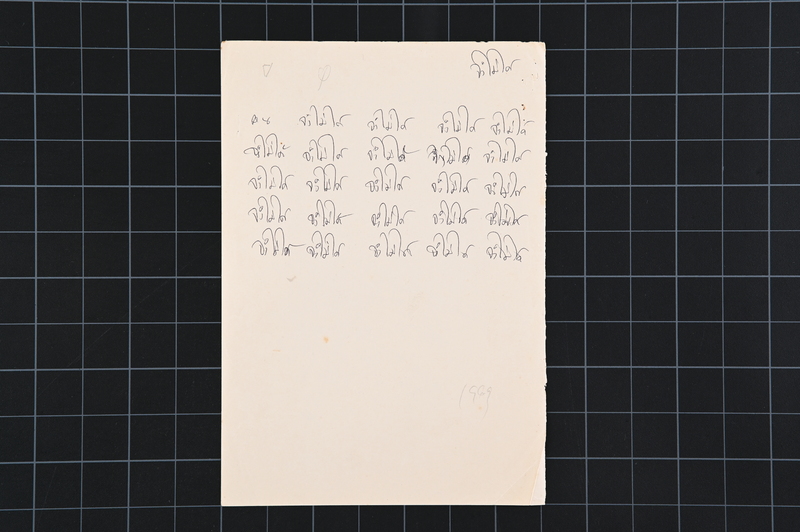 จำไม่ได้
จำไม่ได้ จำไม่ได้ จำไม่ได้ จำไม่ได้
จำไม่ได้ จำไม่ได้ จำไม่ได้ จำไม่ได้ จำไม่ได้
จำไม่ได้ จำไม่ได้ จำไม่ได้ จำไม่ได้ จำไม่ได้
จำไม่ได้ จำไม่ได้ จำไม่ได้ จำไม่ได้ จำไม่ได้
จำไม่ได้ จำไม่ได้ จำไม่ได้ จำไม่ได้ จำไม่ได้